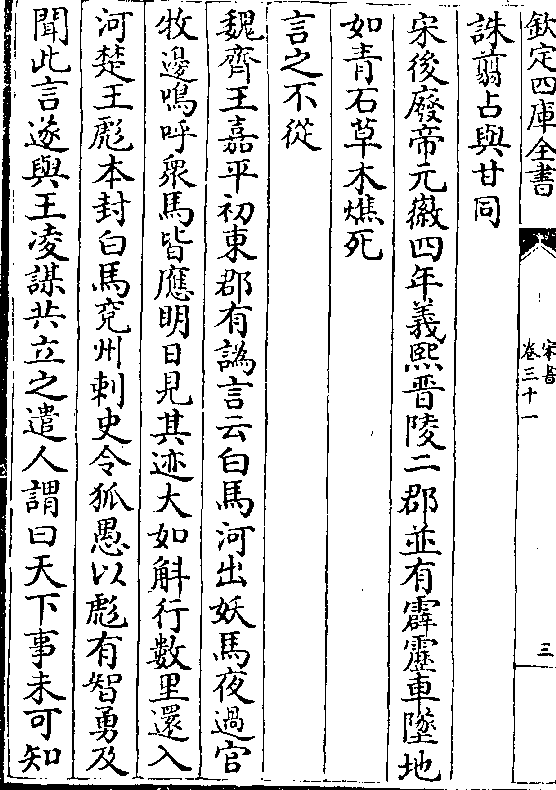 欽定四庫全書
宋書
卷三十一
三
誅翦占與甘同
宋後廢帝元徽四年義熙晉陵二郡並有霹靂車墜地
如青石草木燋死
言之不從
魏齊王嘉平初東郡有譌言云白馬河出妖馬夜過官
牧邊鳴呼衆馬皆應明日見其迹大如斛行數里還入
河楚王彪本封白馬兖州刺史令狐愚以彪有智勇及
聞此言遂與王凌謀共立之遣人謂曰天下事未可知